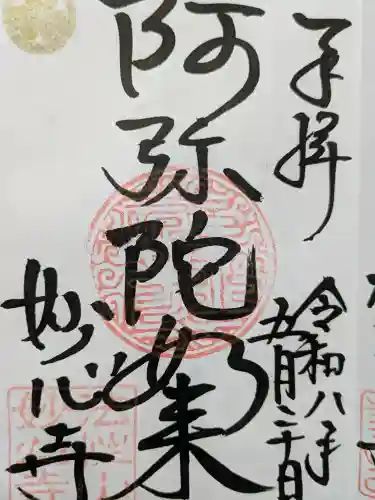 奉拝
令和八年
五月三十日
阿弥陀如来
妙心寺